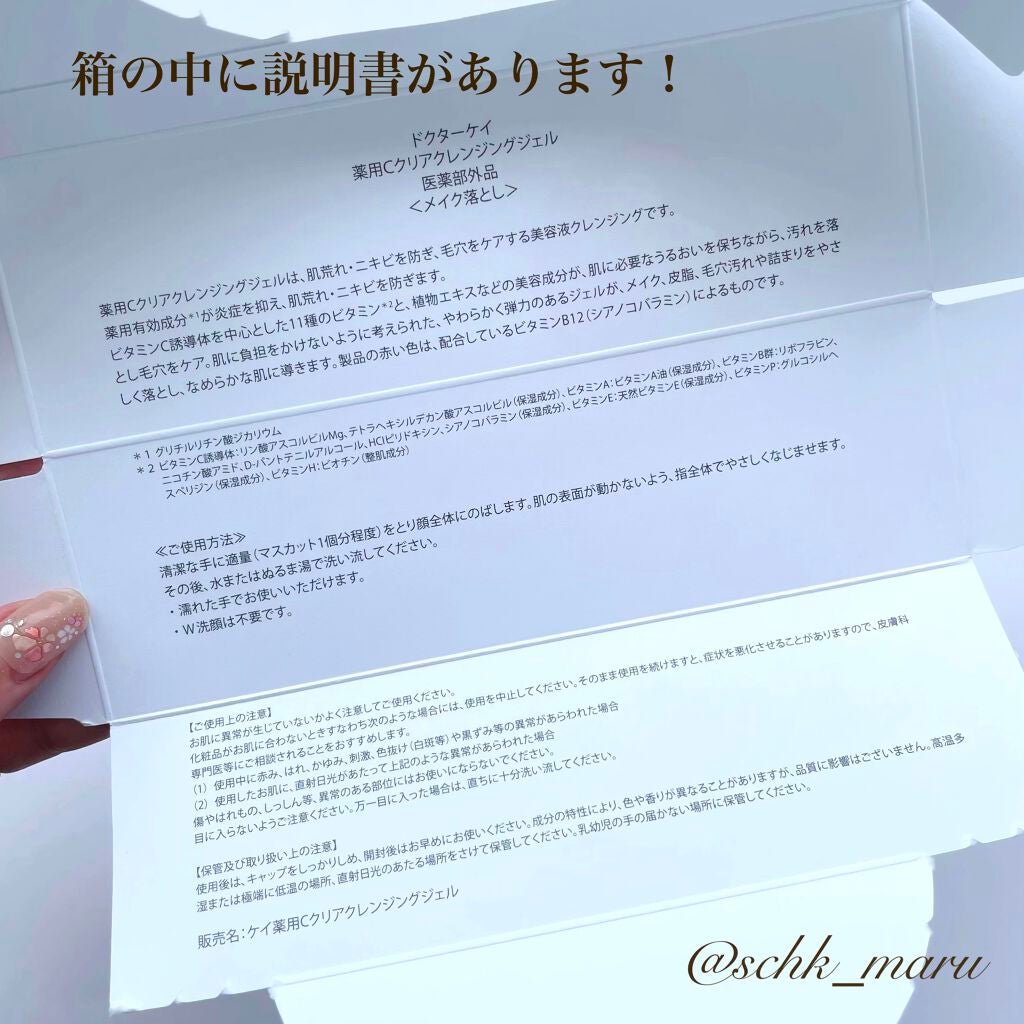 箱の中に説明書があります！
ドクターケイ
薬用Cクリアクレンジングジェル
医薬部外品
＜メイク落とし＞
薬用Cクリアクレンジングジェルは、肌荒れ・ニキビを防ぎ、毛穴をケアする美容液クレンジングです。
薬用有効成分＊1が炎症を抑え、肌荒れ・ニキビを防ぎます。
ビタミンC誘導体を中心とした11種のビタミン＊2と、植物エキスなどの美容成分が、肌に必要なうるおいを保ちながら、汚れを落
とし毛穴をケア。肌に負担をかけないように考えられた、やわらかく弾力のあるジェルが、メイク、皮脂、毛穴汚れや詰まりをやさ
しく落とし、なめらかな肌に導きます。製品の赤い色は、配合しているビタミンB12（シアノコバラミン）によるものです。
＊1 グリチルリチン酸ジカリウム
＊2 ビタミンC誘導体：リン酸アスコルビルMg、テトラヘキシルデカン酸アスコルビル（保湿成分）、ビタミンA：ビタミンA油（保湿成分）、ビタミンB群：リボフラビン、
ニコチン酸アミド、D-パントテニルアルコール、HClピリドキシン、シアノコバラミン（保湿成分）、ビタミンE：天然ビタミンE（保湿成分）、ビタミンP：グルコシルヘ
スペリジン（保湿成分）、ビタミンH：ビオチン（整肌成分）
≪ご使用方法≫
清潔な手に適量（マスカット1個分程度）をとり顔全体にのばします。肌の表面が動かないよう、指全体でやさしくなじませます。
その後、水またはぬるま湯で洗い流してください。
・濡れた手でお使いいただけます。
・W洗顔は不要です。
【ご使用上の注意】
お肌に異常が生じていないかよく注意してご使用ください。
化粧品がお肌に合わないときすなわち次のような場合には、使用を中止してください。そのまま使用を続けますと、症状を悪化させることがありますので、皮膚科
専門医等にご相談されることをおすすめします。
（1）使用中に赤み、はれ、かゆみ、刺激、色抜け（白斑等）や黒ずみ等の異常があらわれた場合
（2）使用したお肌に、直射日光があたって上記のような異常があらわれた場合
傷やはれもの、しっしん等、異常のある部位にはお使いにならないでください。
目に入らないようご注意ください。万一目に入った場合は、直ちに十分洗い流してください。
【保管及び取り扱い上の注意】
使用後は、キャップをしっかりしめ、開封後はお早めにお使いください。成分の特性により、色や香りが異なることがありますが、品質に影響はございません。高温多
湿または極端に低温の場所、直射日光のあたる場所をさけて保管してください。乳幼児の手の届かない場所に保管してください。
販売名：ケイ薬用Cクリアクレンジングジェル
@schk_maru